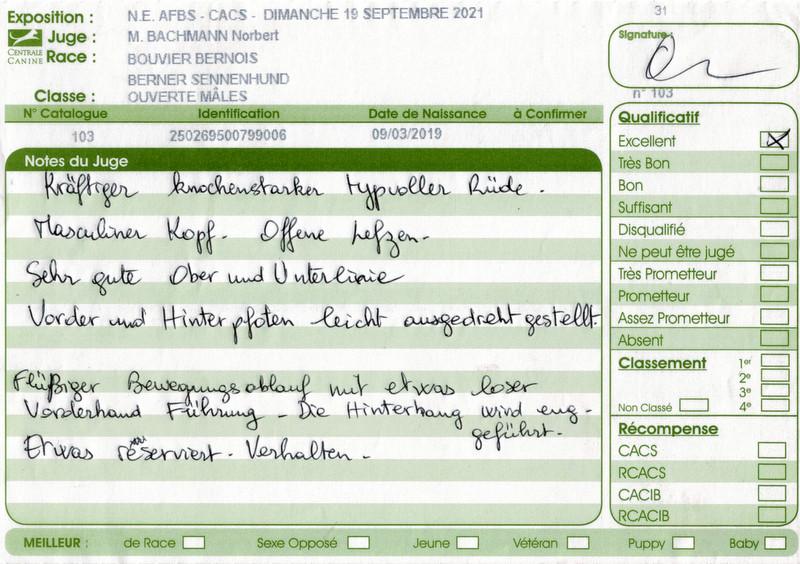 Exposition : N.E. AFBS - CACS - DIMANCHE 19 SEPTEMBRE 2021
31
CENTRALE CANINE
Juge : M. BACHMANN Norbert
Race : BOUVIER BERNOIS
BERNER SENNENHUND
Classe : OUVERTE MÂLES
Signature :
n° 103
N° Catalogue Identification Date de Naissance à Confirmer
103 250269500799006 09/03/2019
Notes du Juge
Kräftiger knochenstarker typvoller Rüde.
Masculiner Kopf. Offene Lefzen.
Sehr gute Ober und Unterlinie
Vorder und Hinterpfoten leicht ausgedreht gestellt.
Flüßiger Bewegungsablauf mit etwas loser
Vorderhand Führung - Die Hinterhang wird eng-
geführt.
Etwas reserviert. Verhalten.
Qualificatif
Excellent
Très Bon
Bon
Suffisant
Disqualifié
Ne peut être jugé
Très Prometteur
Prometteur
Assez Prometteur
Absent
Classement 1er
2e
3e
Non Classé 4e
Récompense
CACS
RCACS
CACIB
RCACIB
MEILLEUR : de Race Sexe Opposé Jeune Vétéran Puppy Baby